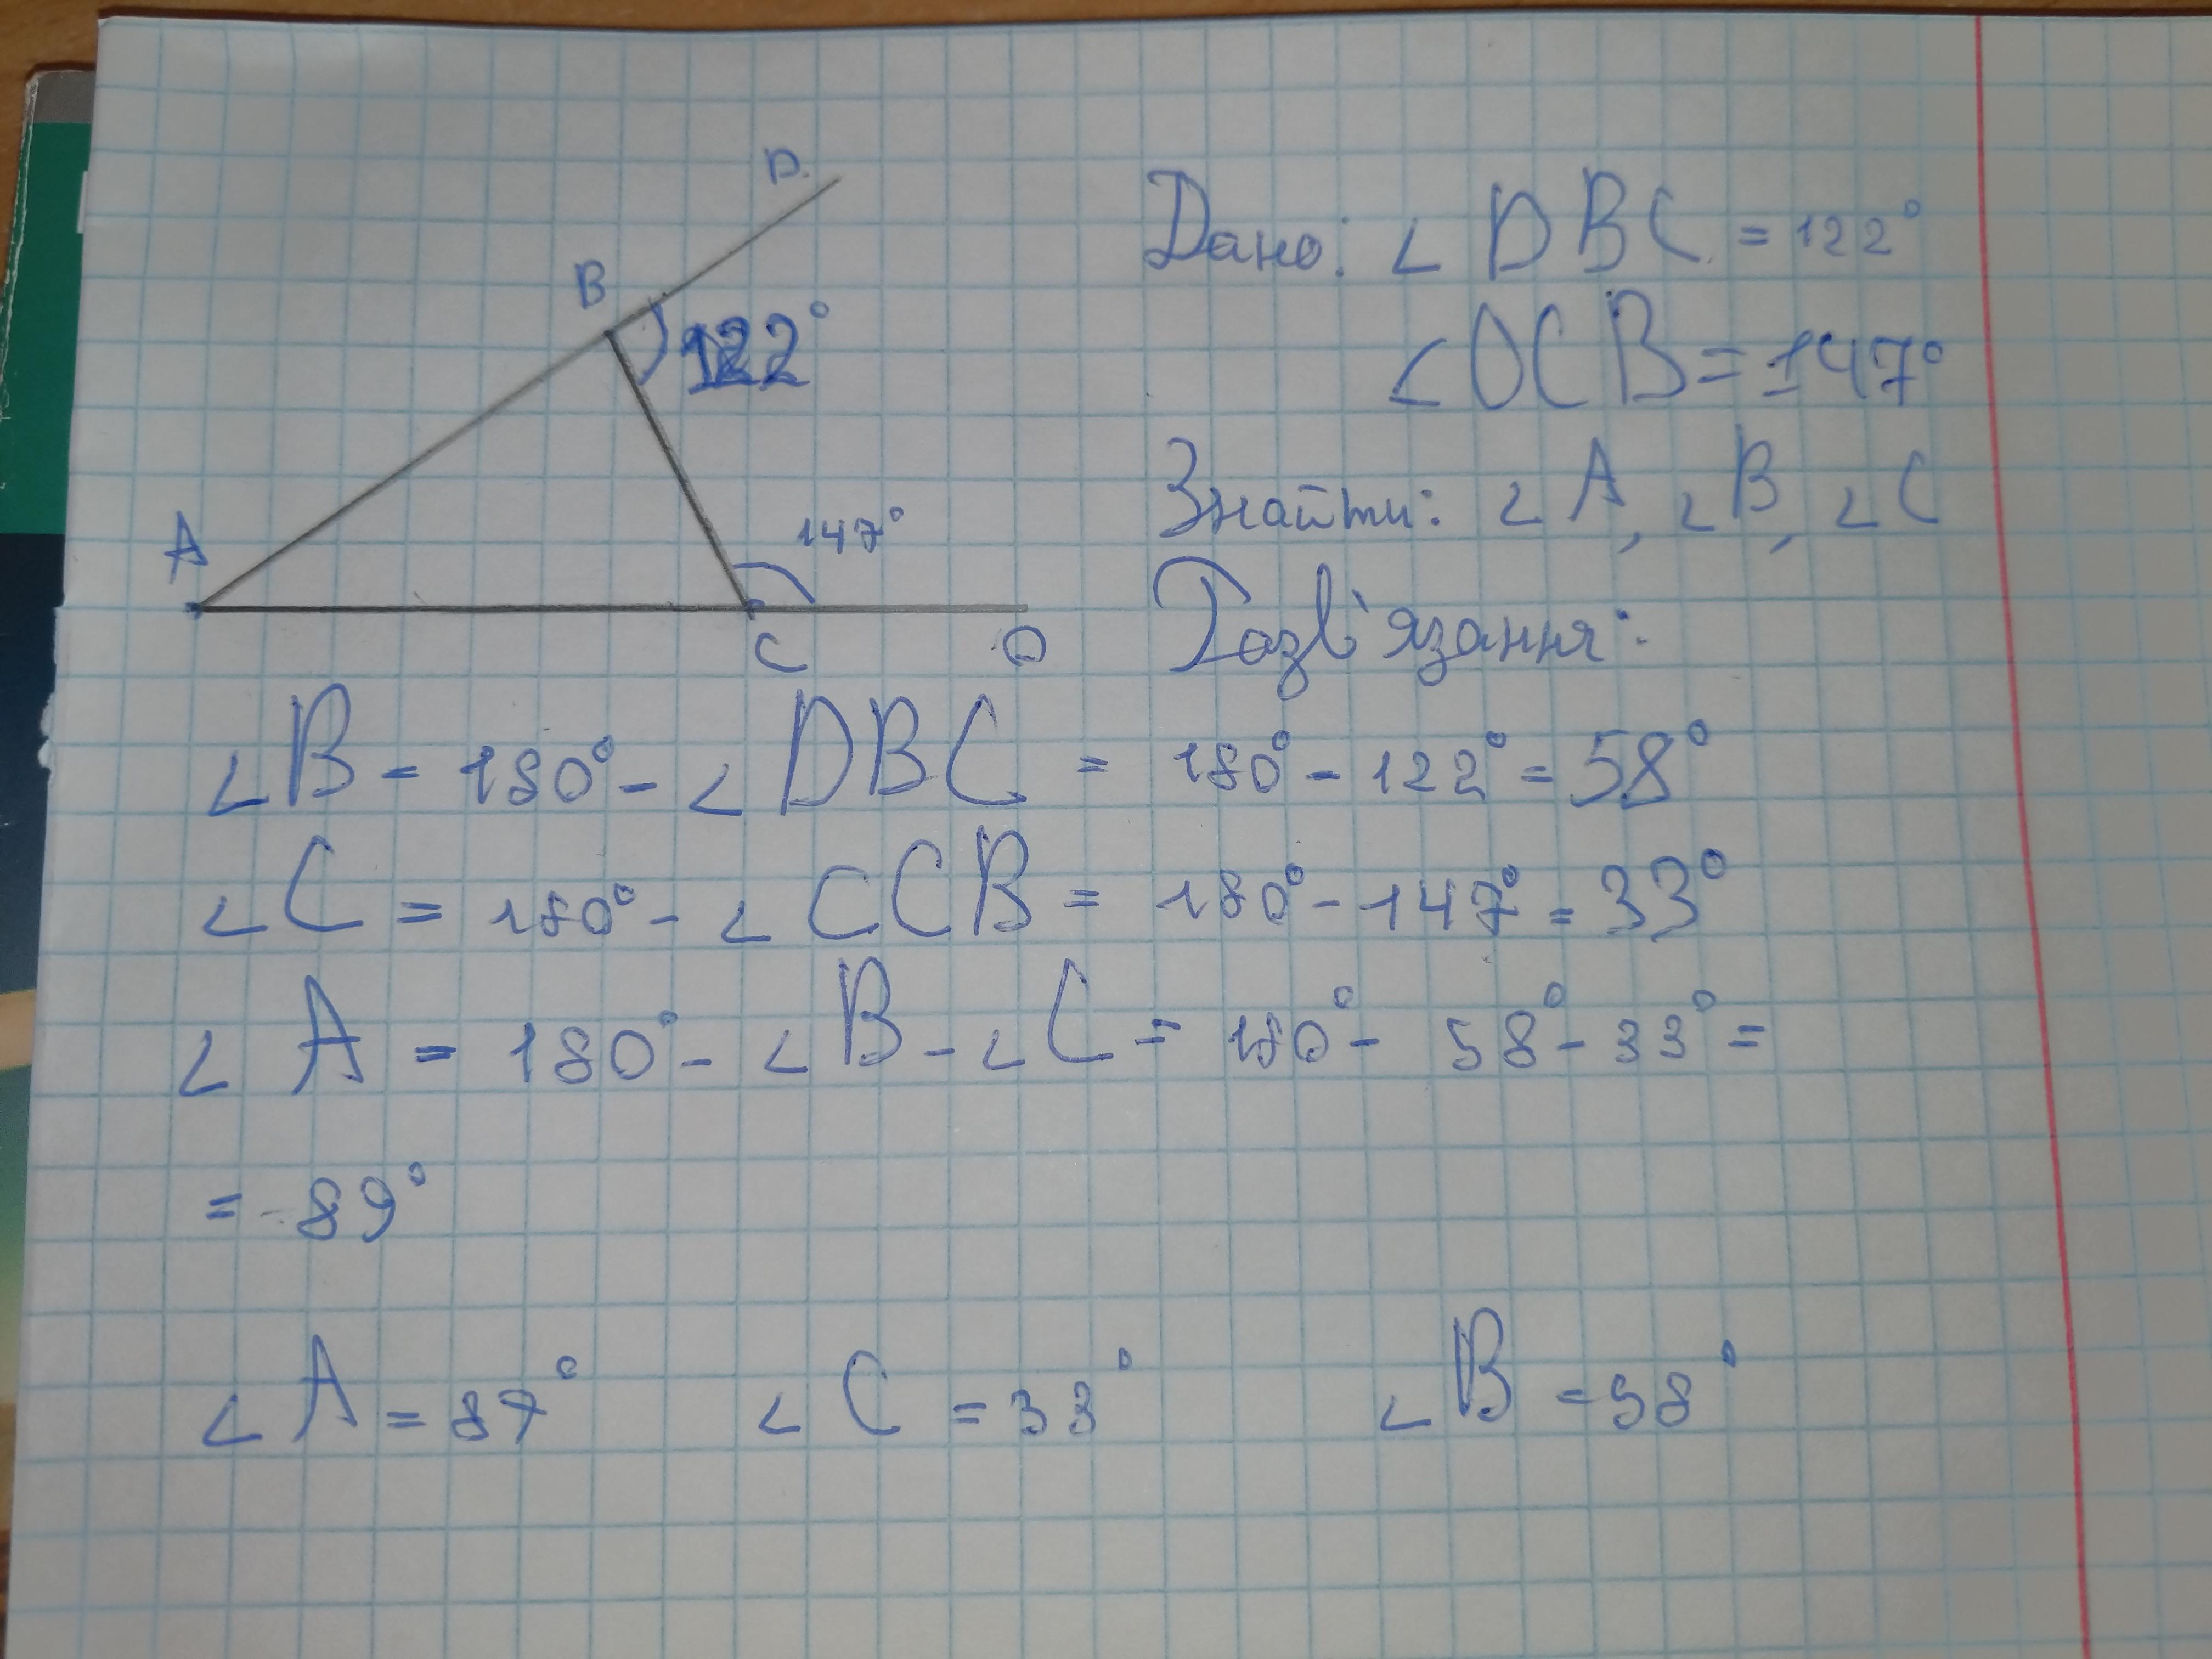 D
B
122°
A
147°
C
O
Дано: ∠DBC = 122°
∠OCB = 147°
Знайти: ∠A, ∠B, ∠C
Розв'язання:
∠B = 180° - ∠DBC = 180° - 122° = 58°
∠C = 180° - ∠CCB = 180° - 147° = 33°
∠A = 180° - ∠B - ∠C = 180° - 58° - 33° =
= 89°
∠A = 87° ∠C = 33° ∠B = 58°